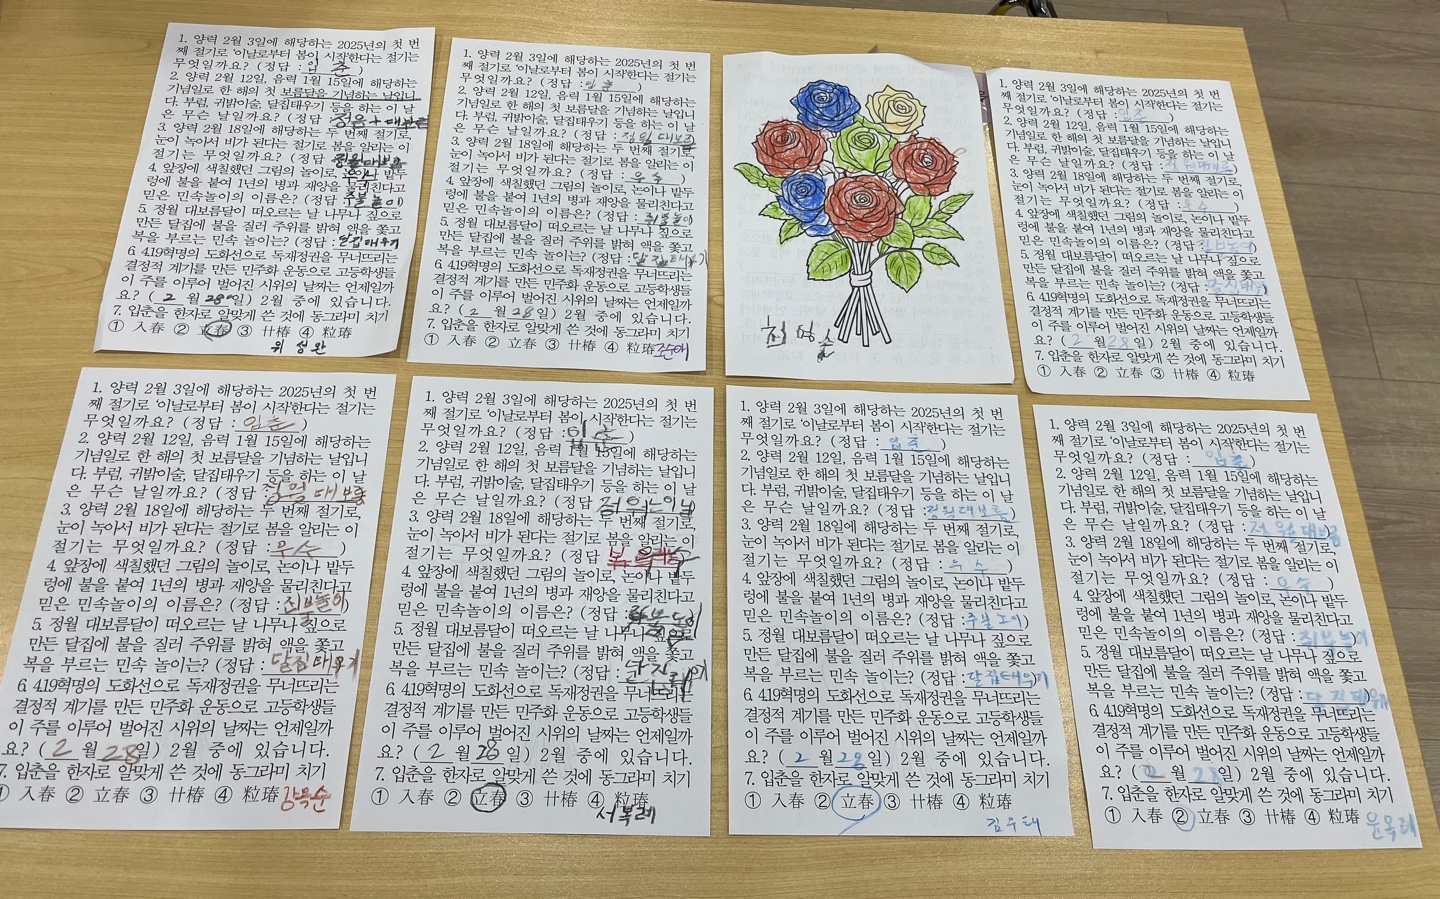 1. 양력 2월 3일에 해당하는 2025년의 첫 번
째 절기로 '이날로부터 봄이 시작'한다는 절기는
무엇일까요? (정답 : 입춘 )
2. 양력 2월 12일, 음력 1월 15일에 해당하는
기념일로 한 해의 첫 보름달을 기념하는 날입니
다. 부럼, 귀밝이술, 달집태우기 등을 하는 이 날
은 무슨 날일까요? (정답
3. 양력 2월 18일에 해당하는 두 번째 절기로,
눈이 녹아서 비가 된다는 절기로 봄을 알리는 이
절기는 무엇일까요? (정답 정월대보름
우수
4. 앞장에 색칠했던 그림의 놀이로, 논이나 밭두
렁에 불을 붙여 1년의 병과 재앙을 물리친다고
믿은 민속놀이의 이름은? (정답 쥐불놀이
5. 정월 대보름달이 떠오르는 날 나무나 짚으로
만든 달집에 불을 질러 주위를 밝혀 액을 쫓고
복을 부르는 민속 놀이는? (정답 : 달집태우기
6. 4.19혁명의 도화선으로 독재정권을 무너뜨리는
결정적 계기를 만든 민주화 운동으로 고등학생들
이 주를 이루어 벌어진 시위의 날짜는 언제일까
요? ( 2 월 28일) 2월 중에 있습니다.
7. 입춘을 한자로 알맞게 쓴 것에 동그라미 치기
① 入春 ② 立春 ③ 廾椿 ④ 粒瑃
위성완
1. 양력 2월 3일에 해당하는 2025년의 첫 번
째 절기로 '이날로부터 봄이 시작'한다는 절기는
무엇일까요? (정답 : 입춘 )
2. 양력 2월 12일, 음력 1월 15일에 해당하는
기념일로 한 해의 첫 보름달을 기념하는 날입니
다. 부럼, 귀밝이술, 달집태우기 등을 하는 이 날
은 무슨 날일까요? (정답 : 정월대보름
3. 양력 2월 18일에 해당하는 두 번째 절기로,
눈이 녹아서 비가 된다는 절기로 봄을 알리는 이
절기는 무엇일까요? (정답 : 우수 )
4. 앞장에 색칠했던 그림의 놀이로, 논이나 밭두
렁에 불을 붙여 1년의 병과 재앙을 물리친다고
믿은 민속놀이의 이름은? (정답 : 쥐불놀이
5. 정월 대보름달이 떠오르는 날 나무나 짚으로
만든 달집에 불을 질러 주위를 밝혀 액을 쫓고
복을 부르는 민속 놀이는? (정답 : 달집태우기
6. 4.19혁명의 도화선으로 독재정권을 무너뜨리는
결정적 계기를 만든 민주화 운동으로 고등학생들
이 주를 이루어 벌어진 시위의 날짜는 언제일까
요? ( 2 월 28 일) 2월 중에 있습니다.
7. 입춘을 한자로 알맞게 쓴 것에 동그라미 치기
① 入春 ② 立春 ③ 廾椿 ④ 粒瑃 조순애
1. 양력 2월 3일에 해당하는 2025년의 첫 번
째 절기로 '이날로부터 봄이 시작'한다는 절기는
무엇일까요? (정답 : 입춘 )
2. 양력 2월 12일, 음력 1월 15일에 해당하는
기념일로 한 해의 첫 보름달을 기념하는 날입니
다. 부럼, 귀밝이술, 달집태우기 등을 하는 이 날
은 무슨 날일까요? (정답 :
3. 양력 2월 18일에 해당하는 두 번째 절기로,
눈이 녹아서 비가 된다는 절기로 봄을 알리는 이
절기는 무엇일까요? (정답 : 우수 )
4. 앞장에 색칠했던 그림의 놀이로, 논이나 밭두
렁에 불을 붙여 1년의 병과 재앙을 물리친다고
믿은 민속놀이의 이름은? (정답
5. 정월 대보름달이 떠오르는 날 나무나 짚으로
만든 달집에 불을 질러 주위를 밝혀 액을 쫓고
복을 부르는 민속 놀이는? (정답 :
6. 4.19혁명의 도화선으로 독재정권을 무너뜨리는
결정적 계기를 만든 민주화 운동으로 고등학생들
이 주를 이루어 벌어진 시위의 날짜는 언제일까
요? ( 2 월 28 일) 2월 중에 있습니다.
7. 입춘을 한자로 알맞게 쓴 것에 동그라미 치기
① 入春 ② 立春 ③ 廾椿 ④ 粒瑃
1. 양력 2월 3일에 해당하는 2025년의 첫 번
째 절기로 '이날로부터 봄이 시작'한다는 절기는
무엇일까요? (정답 : 입춘 )
2. 양력 2월 12일, 음력 1월 15일에 해당하는
기념일로 한 해의 첫 보름달을 기념하는 날입니
다. 부럼, 귀밝이술, 달집태우기 등을 하는 이 날
은 무슨 날일까요? (정답 : 정월대보름
3. 양력 2월 18일에 해당하는 두 번째 절기로,
눈이 녹아서 비가 된다는 절기로 봄을 알리는 이
절기는 무엇일까요? (정답 : 우수 )
4. 앞장에 색칠했던 그림의 놀이로, 논이나 밭두
렁에 불을 붙여 1년의 병과 재앙을 물리친다고
믿은 민속놀이의 이름은? (정답 :
5. 정월 대보름달이 떠오르는 날 나무나 짚으로
만든 달집에 불을 질러 주위를 밝혀 액을 쫓고
복을 부르는 민속 놀이는? (정답 : 달집태우기
6. 4.19혁명의 도화선으로 독재정권을 무너뜨리는
결정적 계기를 만든 민주화 운동으로 고등학생들
이 주를 이루어 벌어진 시위의 날짜는 언제일까
요? ( 2 월 28일) 2월 중에 있습니다.
7. 입춘을 한자로 알맞게 쓴 것에 동그라미 치기
① 入春 ② 立春 ③ 廾椿 ④ 粒瑃 강옥순
1. 양력 2월 3일에 해당하는 2025년의 첫 번
째 절기로 '이날로부터 봄이 시작'한다는 절기는
무엇일까요? (정답 : 입춘 )
2. 양력 2월 12일, 음력 1월 15일에 해당하는
기념일로 한 해의 첫 보름달을 기념하는 날입니
다. 부럼, 귀밝이술, 달집태우기 등을 하는 이 날
은 무슨 날일까요? (정답
3. 양력 2월 18일에 해당하는 두 번째 절기로,
눈이 녹아서 비가 된다는 절기로 봄을 알리는 이
절기는 무엇일까요? (정답
4. 앞장에 색칠했던 그림의 놀이로, 논이나 밭두
렁에 불을 붙여 1년의 병과 재앙을 물리친다고
믿은 민속놀이의 이름은? (정답
5. 정월 대보름달이 떠오르는 날 나무나 짚으로
만든 달집에 불을 질러 주위를 밝혀 액을 쫓고
복을 부르는 민속 놀이는? (정답 :
6. 4.19혁명의 도화선으로 독재정권을 무너뜨리는
결정적 계기를 만든 민주화 운동으로 고등학생들
이 주를 이루어 벌어진 시위의 날짜는 언제일까
요? ( 2 월 28 일) 2월 중에 있습니다.
7. 입춘을 한자로 알맞게 쓴 것에 동그라미 치기
① 入春 ② 立春 ③ 廾椿 ④ 粒瑃
서복례
1. 양력 2월 3일에 해당하는 2025년의 첫 번
째 절기로 '이날로부터 봄이 시작'한다는 절기는
무엇일까요? (정답 : 입춘 )
2. 양력 2월 12일, 음력 1월 15일에 해당하는
기념일로 한 해의 첫 보름달을 기념하는 날입니
다. 부럼, 귀밝이술, 달집태우기 등을 하는 이 날
은 무슨 날일까요? (정답 : 정월대보름 )
3. 양력 2월 18일에 해당하는 두 번째 절기로,
눈이 녹아서 비가 된다는 절기로 봄을 알리는 이
절기는 무엇일까요? (정답 : 우수 )
4. 앞장에 색칠했던 그림의 놀이로, 논이나 밭두
렁에 불을 붙여 1년의 병과 재앙을 물리친다고
믿은 민속놀이의 이름은? (정답 : 주불노이 )
5. 정월 대보름달이 떠오르는 날 나무나 짚으로
만든 달집에 불을 질러 주위를 밝혀 액을 쫓고
복을 부르는 민속 놀이는? (정답 : 달집태우기
6. 4.19혁명의 도화선으로 독재정권을 무너뜨리는
결정적 계기를 만든 민주화 운동으로 고등학생들
이 주를 이루어 벌어진 시위의 날짜는 언제일까
요? ( 2 월 28 일) 2월 중에 있습니다.
7. 입춘을 한자로 알맞게 쓴 것에 동그라미 치기
① 入春 ② 立春 ③ 廾椿 ④ 粒瑃
김우태
1. 양력 2월 3일에 해당하는 2025년의 첫 번
째 절기로 '이날로부터 봄이 시작'한다는 절기는
무엇일까요? (정답 : 입춘 )
2. 양력 2월 12일, 음력 1월 15일에 해당하는
기념일로 한 해의 첫 보름달을 기념하는 날입니
다. 부럼, 귀밝이술, 달집태우기 등을 하는 이 날
은 무슨 날일까요? (정답 : 정월대보름
3. 양력 2월 18일에 해당하는 두 번째 절기로,
눈이 녹아서 비가 된다는 절기로 봄을 알리는 이
절기는 무엇일까요? (정답 : 우수 )
4. 앞장에 색칠했던 그림의 놀이로, 논이나 밭두
렁에 불을 붙여 1년의 병과 재앙을 물리친다고
믿은 민속놀이의 이름은? (정답 : 쥐불놀이
5. 정월 대보름달이 떠오르는 날 나무나 짚으로
만든 달집에 불을 질러 주위를 밝혀 액을 쫓고
복을 부르는 민속 놀이는? (정답 :
6. 4.19혁명의 도화선으로 독재정권을 무너뜨리는
결정적 계기를 만든 민주화 운동으로 고등학생들
이 주를 이루어 벌어진 시위의 날짜는 언제일까
요? ( 2 월 28 일) 2월 중에 있습니다.
7. 입춘을 한자로 알맞게 쓴 것에 동그라미 치기
① 入春 ② 立春 ③ 廾椿 ④ 粒瑃 윤옥례